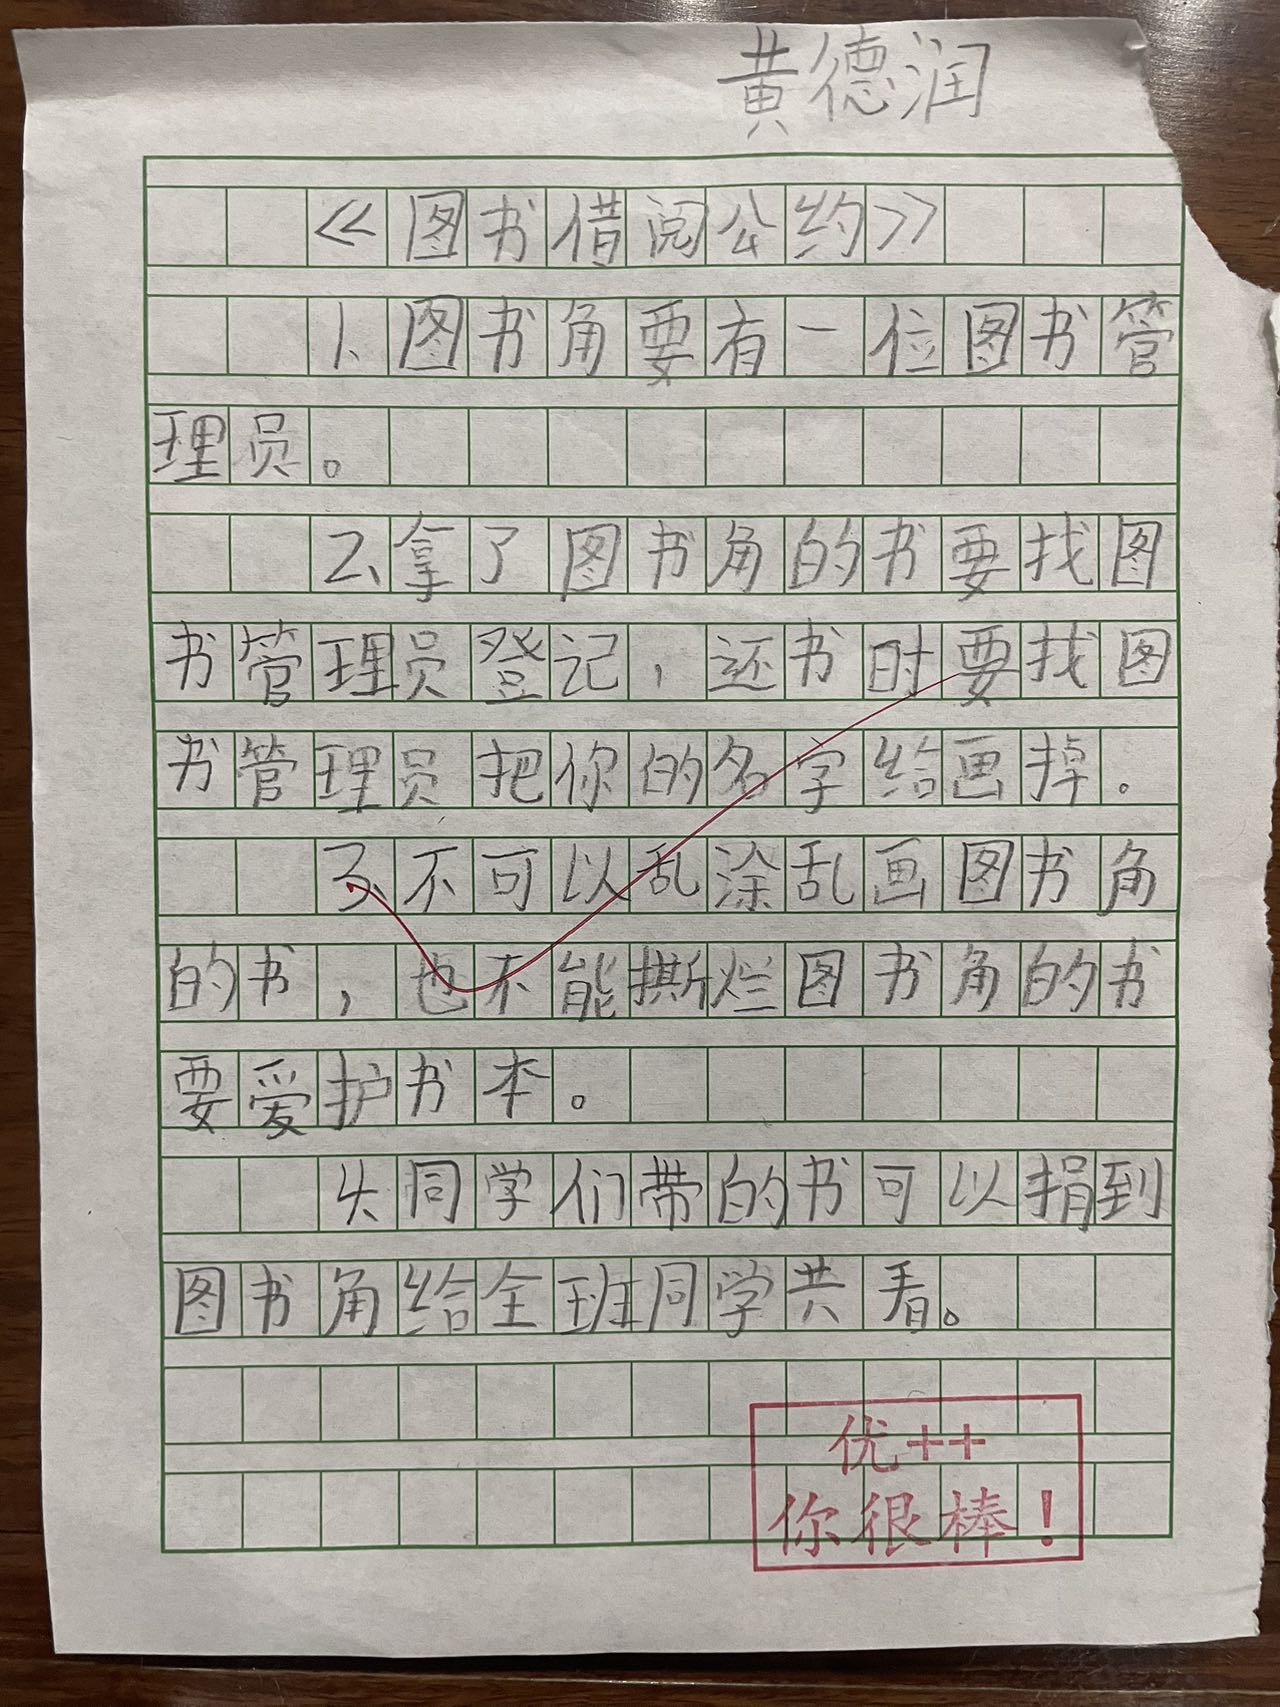 黄德润
《图书借阅公约》
1、图书角要有一位图书管
理员。
2、拿了图书角的书要找图
书管理员登记，还书时要找图
书管理员把你的名字给画掉。
3、不可以乱涂乱画图书角
的书，也不能撕烂图书角的书
要爱护书本。
4、同学们带的书可以捐到
图书角给全班同学共看。
优++
你很棒！